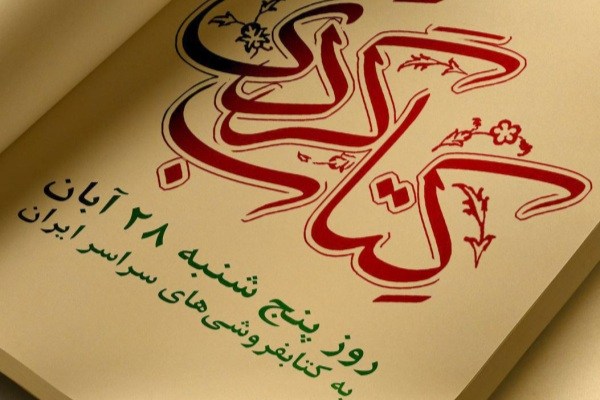 کتاب‌گردی
روز پنج شنبه ۲۸ آبان
به کتابفروشی‌های سراسر ایران